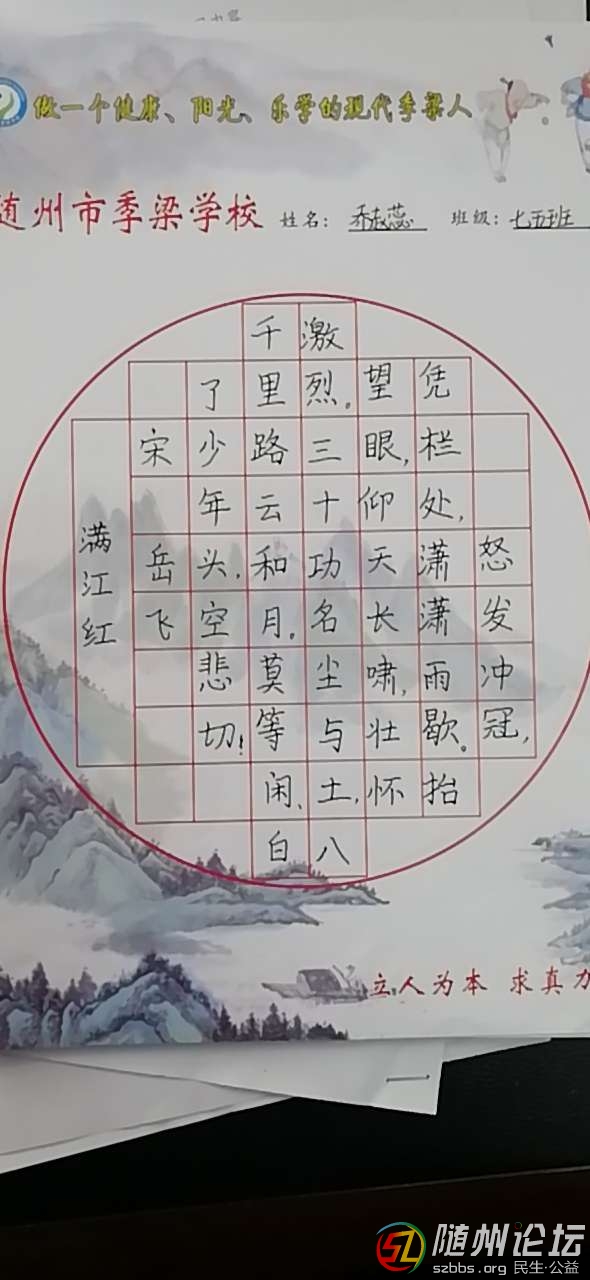 做一个健康、阳光、乐学的现代季梁人
随州市季梁学校
姓名：
班级：七五班
怒发冲冠，
凭栏处，潇潇雨歇。抬
望眼，仰天长啸，壮怀
激烈。三十功名尘与土，八
千里路云和月。莫等闲、白
了少年头，空悲切！
宋 岳飞
满江红
立人为本 求真
随州论坛
szbbs.org 民生·公益